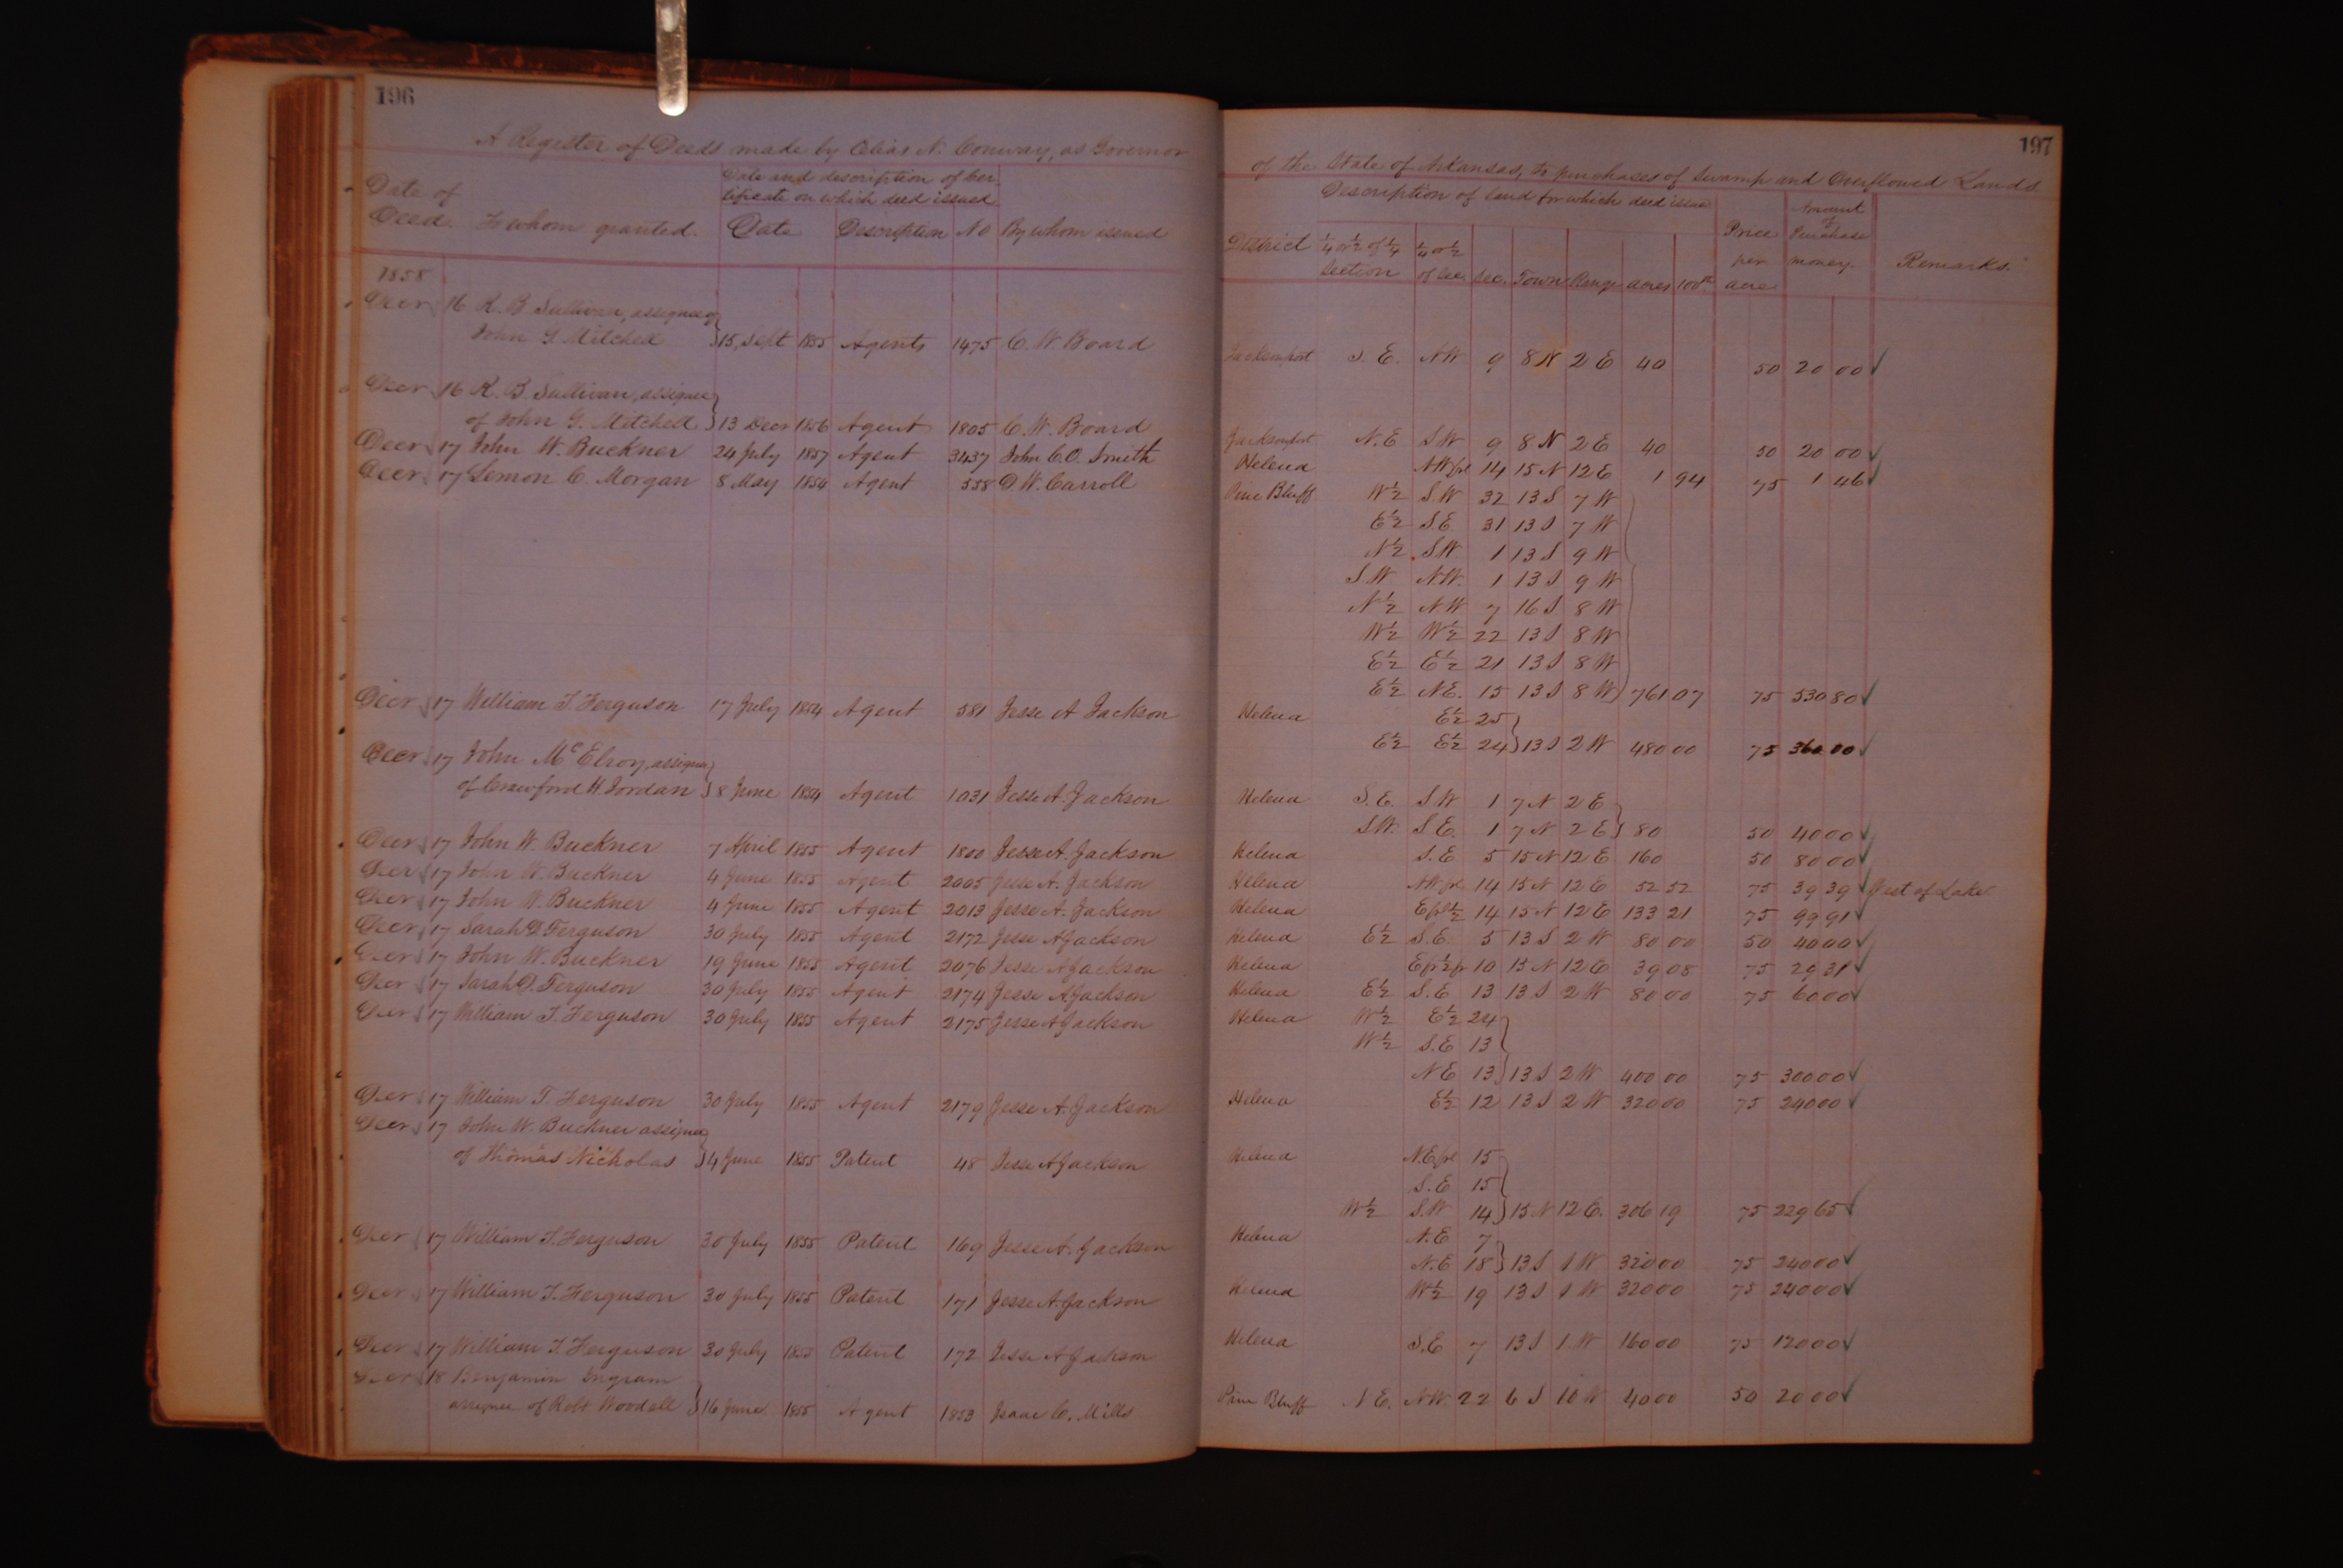 196
A Register of Deeds made by Elias N. Conway, as Governor
Date of Deed.
To whom granted.
Date and description of cer-
tificate on which deed issued.
Date Description No By whom issued
1858
Decr 16 R. B. Sullivan, assignee of
John G Mitchell } 15, Sept 1855 Agents 1475 C. W. Board
Decr 16 R. B. Sullivan, assignee
of John G. Mitchell } 13 Decr 1856 Agent 1805 C. W. Board
Decr 17 John W. Buckner 24 July 1857 Agent 3437 John C. O. Smith
Decr 17 Lemon C. Morgan 8 May 1854 Agent 558 D. W. Carroll
Decr 17 William T. Ferguson 17 July 1854 Agent 581 Jesse A Jackson
Decr 17 John McElroy, assignee
of Crawford H. Jordan } 8 June 1854 Agent 1031 Jesse A. Jackson
Decr 17 John W. Buckner 7 April 1855 Agent 1800 Jesse A. Jackson
Decr 17 John W. Buckner 4 June 1855 Agent 2005 Jesse A. Jackson
Decr 17 John W. Buckner 4 June 1855 Agent 2013 Jesse A. Jackson
Decr 17 Sarah D. Ferguson 30 July 1855 Agent 2172 Jesse A Jackson
Decr 17 John W. Buckner 19 June 1855 Agent 2076 Jesse A Jackson
Decr 17 Sarah D. Ferguson 30 July 1855 Agent 2174 Jesse A Jackson
Decr 17 William T. Ferguson 30 July 1855 Agent 2175 Jesse A Jackson
Decr 17 William T. Ferguson 30 July 1855 Agent 2179 Jesse A. Jackson
Decr 17 John W. Buckner assignee
of Thomas Nicholas } 4 June 1855 Patent 48 Jesse A Jackson
Decr 17 William T. Ferguson 30 July 1855 Patent 169 Jesse A. Jackson
Decr 17 William T. Ferguson 30 July 1855 Patent 171 Jesse A. Jackson
Decr 17 William T. Ferguson 30 July 1855 Patent 172 Jesse A Jackson
Decr 18 Benjamin Ingram
assignee of Robt Woodell } 16 June 1855 Agent 1853 Isaac C. Mills
197
of the State of Arkansas, to purchases of Swamp and Overflowed Lands.
Description of land for which deed issued
District
1/4 or 1/2 of 1/4 Section
1/4 or 1/2 of Sec.
Sec. Town Range acres 100th
Price per acre
Amount of Purchase money.
Remarks.
Jacksonport S. E. NW 9 8 N 2 E 40 50 20 00 ✓
Jacksonport N. E SW 9 8 N 2 E 40 50 20 00 ✓
Helena NW frl 14 15 N 12 E 1 94 75 1 46 ✓
Pine Bluff W 1/2 SW 32 13 S 7 W
E 1/2 S.E 31 13 S 7 W
N 1/2 SW 1 13 S 9 W
S.W N.W. 1 13 S 9 W
N 1/2 NW 7 16 S 8 W
W 1/2 W 1/2 22 13 S 8 W
E 1/2 E 1/2 21 13 S 8 W
E 1/2 N E. 15 13 S 8 W } 761 07 75 530 80 ✓
Helena E 1/2 25
E 1/2 E 1/2 24 } 13 S 2 W 480 00 75 360 00 ✓
Helena S. E. SW 1 7 N 2 E
SW. S E. 1 7 N 2 E } 80 50 40 00 ✓
Helena S. E 5 15 N 12 E 160 50 80 00 ✓
Helena NW frl 14 15 N 12 E 52 52 75 39 39 ✓ West of Lake
Helena E frl 1/2 14 15 N 12 E 133 21 75 99 91 ✓
Helena E 1/2 S. E. 5 13 S 2 W 80 00 50 40 00 ✓
Helena 10 15 N 12 E 39 08 75 29 31 ✓
Helena E 1/2 S. E 13 13 S 2 W 80 00 75 60 00 ✓
Helena W 1/2 E 1/2 24
W 1/2 S. E 13
N E 13 } 13 S 2 W 400 00 75 300 00 ✓
Helena E 1/2 12 13 S 2 W 320 00 75 240 00 ✓
Helena N. E frl 15
S. E 15
W 1/2 S.W 14 } 15 N 12 E. 306 19 75 229 65 ✓
Helena N. E 7
N. E 18 } 13 S 1 W 320 00 75 240 00 ✓
Helena W 1/2 19 13 S 1 W 320 00 75 240 00 ✓
Helena S. E 7 13 S 1 W 160 00 75 120 00 ✓
Pine Bluff N E. NW. 22 6 S 10 W 40 00 50 20 00 ✓